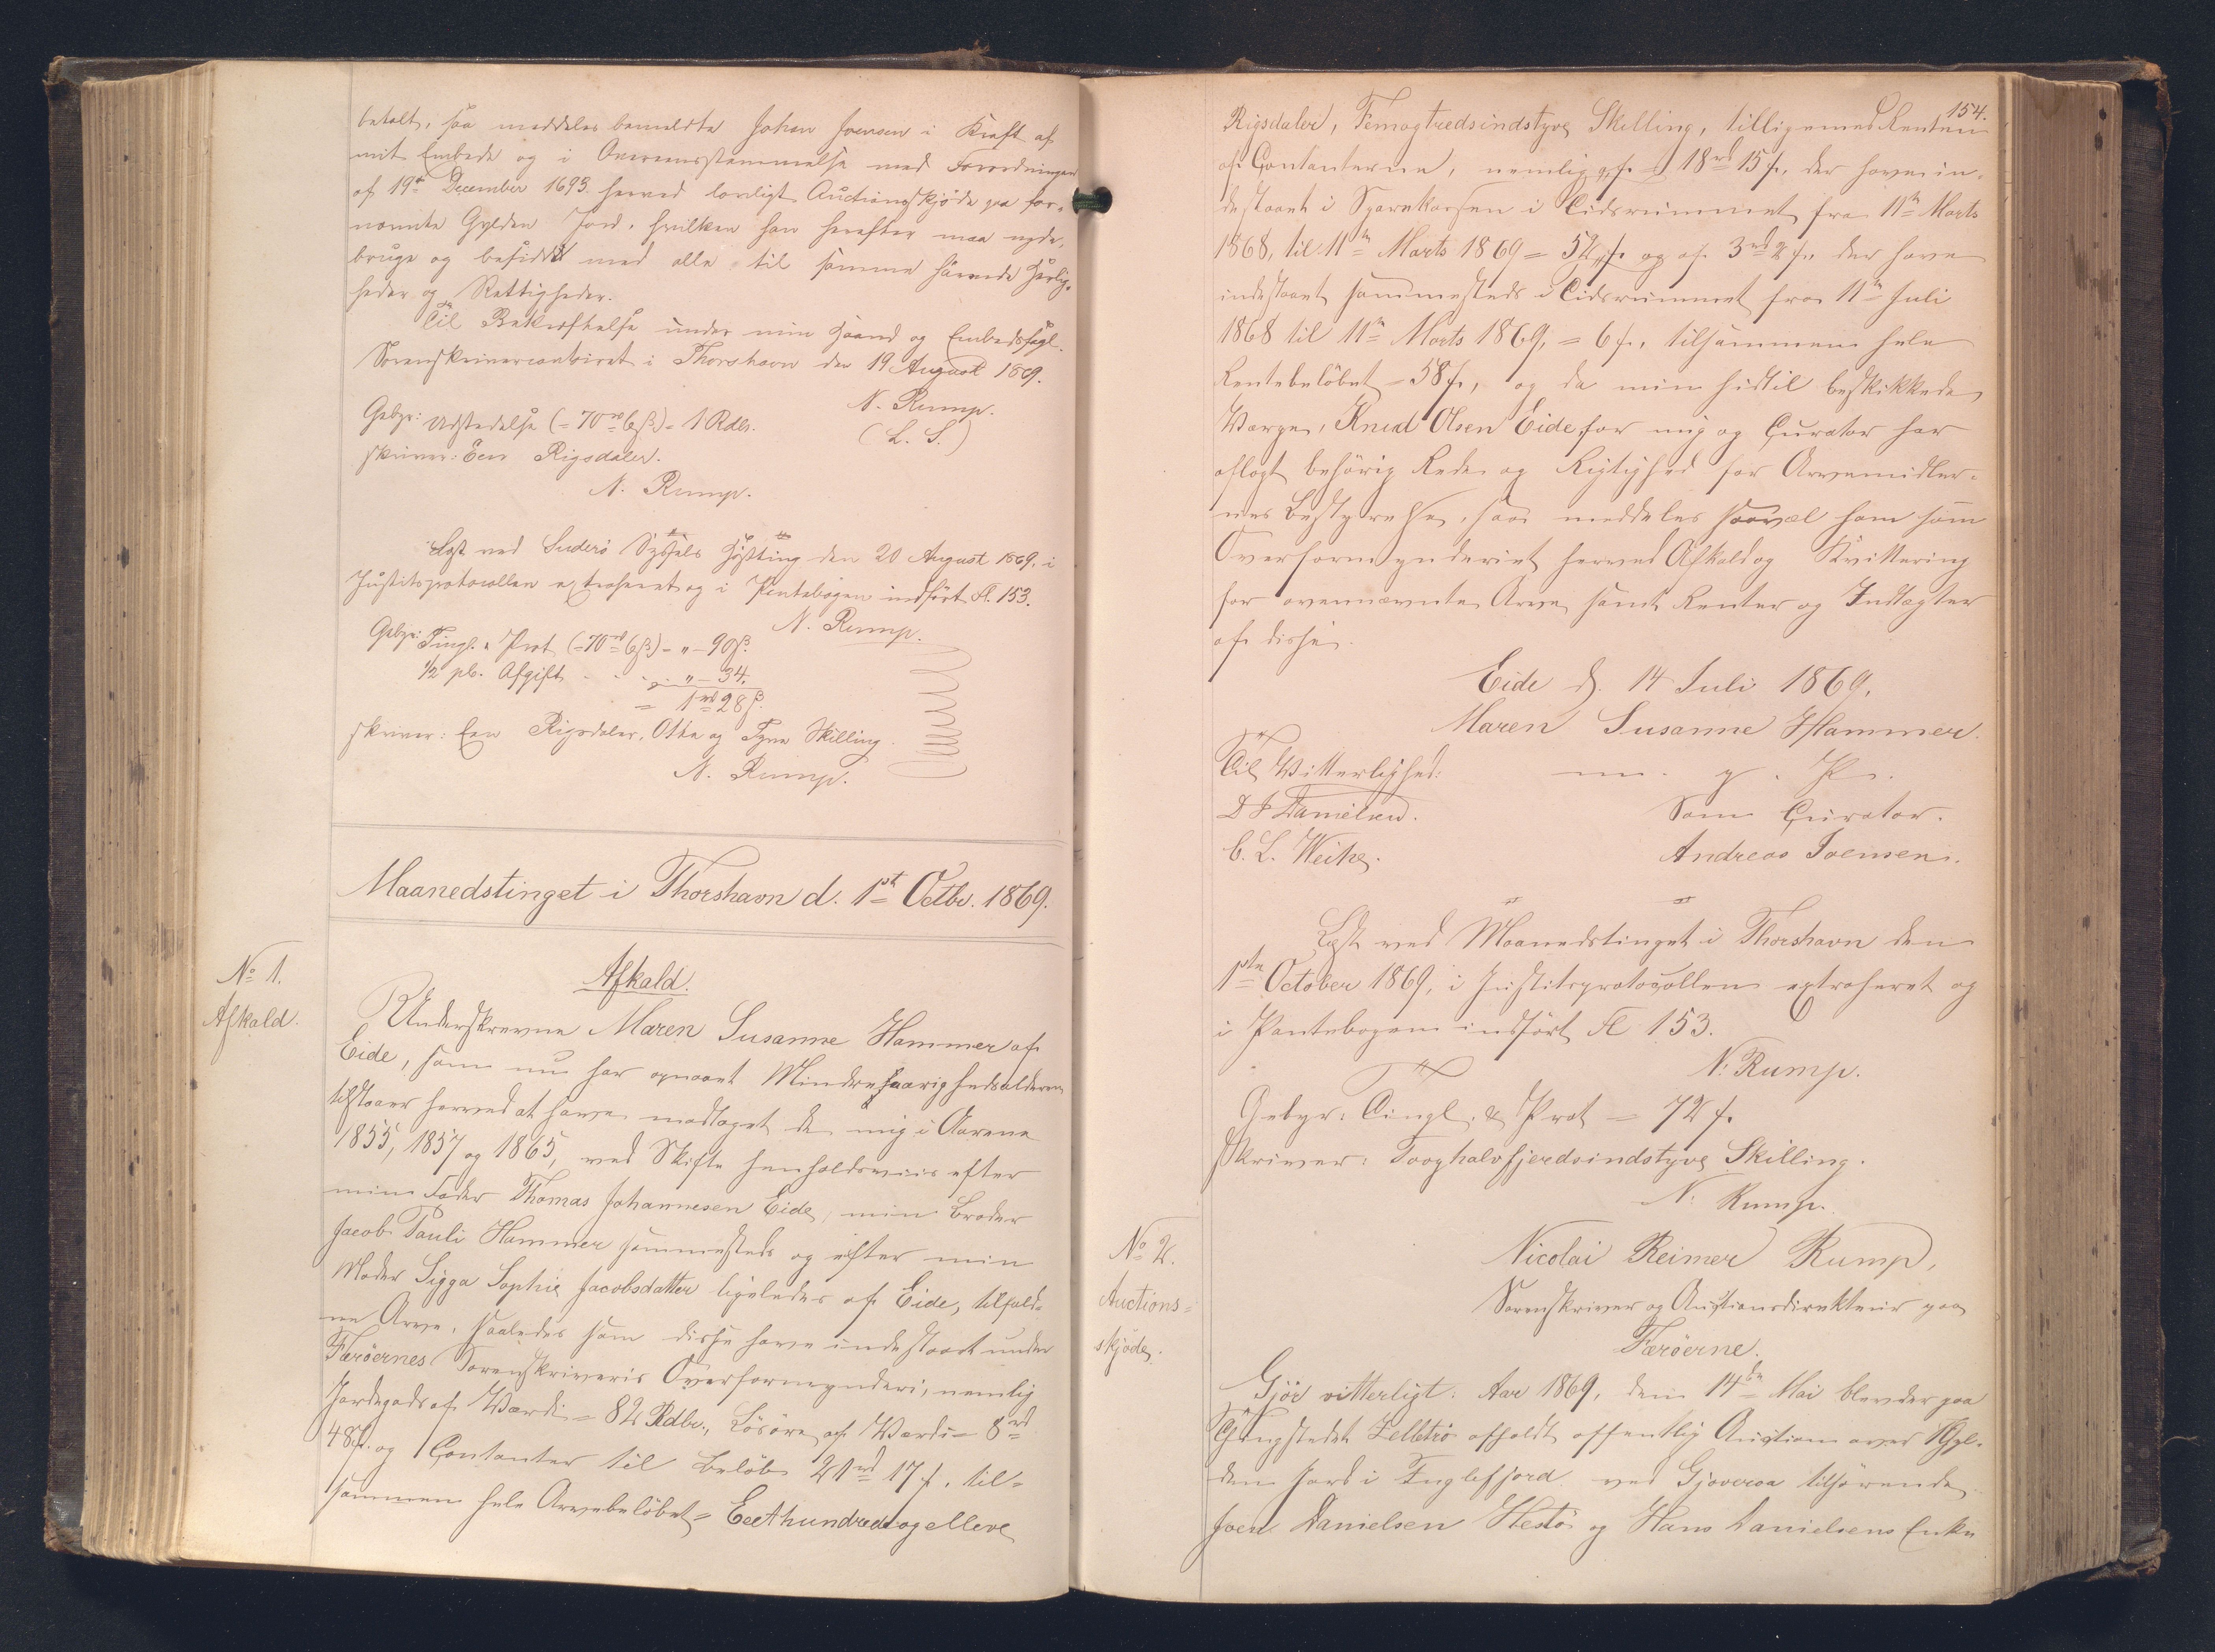 betalt, saa meddeles bemeldte Johan Joensen i Kraft af
mit Embede og i Overeensstemmelse med Forordningen
af 19de December 1693 herved lovligt Auctionsskjøde paa for-
nævnte Gylden Jord, hvilken han herefter maa nyde,
bruge og besidde med alle til samme hørende Herlig-
heder og Rettigheder.
Til Bekræftelse under min Haand og Embedssegl.
Sorenskrivercontoiret i Thorshavn den 19 August 1869.
N. Rump.
(L. S.)
Gebyr: Udstedelse (= 70rd 6ß) = 1 Rdlr.
skriver: Een Rigsdaler.
N. Rump.
Læst ved Suderø Syssels Høstting den 20 August 1869, i
Justitsprotocollen extraheret og i Pantebogen indført Fl. 153.
N. Rump.
Gebyr: Tingl. & Prot (= 70rd 6ß) = " - 90ß.
1/2 pC. Afgift - - - " - 34.
= 1rd 28ß.
skriver: Een Rigsdaler, Otte og Tyve Skilling.
N. Rump.
Maanedstinget i Thorshavn d. 1ste Octbr. 1869.
No 1.
Afkald.
Afkald.
Underskrevne Maren Susanne Hammer af
Eide, som nu har opnaaet Mindreaarighedsalderen
tilstaaer herved at have modtaget de mig i Aarene
1855, 1857 og 1865, ved Skifte henholdsviis efter
min Fader Thomas Johannesen Eide, min Broder
Jacob Pauli Hammer sammesteds og efter min
Moder Sigga Sophie Jacobsdatter ligeledes af Eide, tilfald-
ne Arve, saaledes som disse have indestaaet under
Færøernes Sorenskriveris Overformynderi, nemlig
Jordegods af Værdi = 82 Rdlr., Løsøre af Værdi = 8rd
48ß. og Contanter til Beløb 21rd 17ß, til-
sammen hele Arvebeløbet = Eethundrede og elleve
154.
Rigsdaler, Femogtredsindstyve Skilling, tilligemed Renten
af Contanterne, nemlig af = 18rd 15ß, der have in-
destaaet i Sparekassen i Tidsrummet fra 11te Marts
1868, til 11te Marts 1869 = 52ß og af 3rd 2ß, der have
indestaaet sammesteds i Tidsrummet fra 11te Juli
1868 til 11te Marts 1869, = 6ß, tilsammen hele
Rentebeløbet = 58ß, og da min hidtil beskikkede
Værge, Knud Olsen Eide, for mig og Curator har
aflagt behørig Rede og Rigtighed for Arvemidler-
nes Bestyrelse, saa meddeles saavel ham som
Overformynderiet herved Afkald og Kvittering
for ovennævnte Arve samt Renter og Indtægter
af disse.
Eide d. 14 Juli 1869.
Maren Susanne Hammer.
m. p. P.
Til Vitterlighed:
D J Danielsen.
C. L. Weihe.
Som Curator.
Andreas Joensen.
Læst ved Maanedstinget i Thorshavn den
1ste October 1869, i Justitsprotocollen extraheret og
i Pantebogen indført Fl 153.
N. Rump.
Gebyr: Tingl. & Prot = 72ß.
skriver: Tooghalvfjerdsindstyve Skilling.
N. Rump.
No 2.
Auctions-
skjøde.
Nicolai Reimer Rump,
Sorenskriver og Auctionsdirekteur paa
Færøerne.
Gjør vitterligt: Aar 1869, den 14de Mai blev der paa
Thingstedet Zelletrø afholdt offentlig Auction over 1 Gyl-
den Jord i Fuglefjord ved Gjoveraa tilhørende
Joen Danielsen Hestø og Hans Danielsens Enke